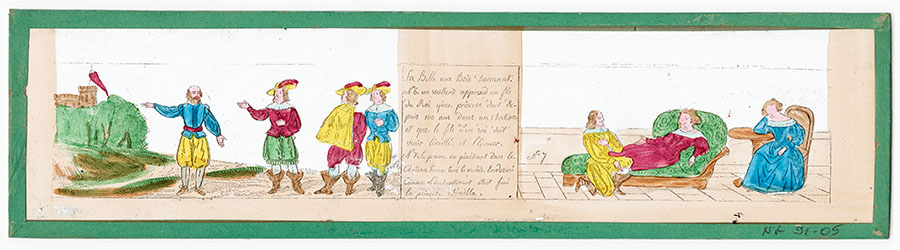 La Belle aux Bois Dormant.
N° 6. un vieillard apprend au fils
du Roi qu'une princesse dort de-
puis 100 ans dans un château
et que le fils d'un roi doit
venir l'éveiller et l'épouser.
N° 7. le prince en pénétrant dans le
château trouve tout le monde endormi
comme l'enchantement était fini
la princesse s'éveilla.
N° 7
91-05